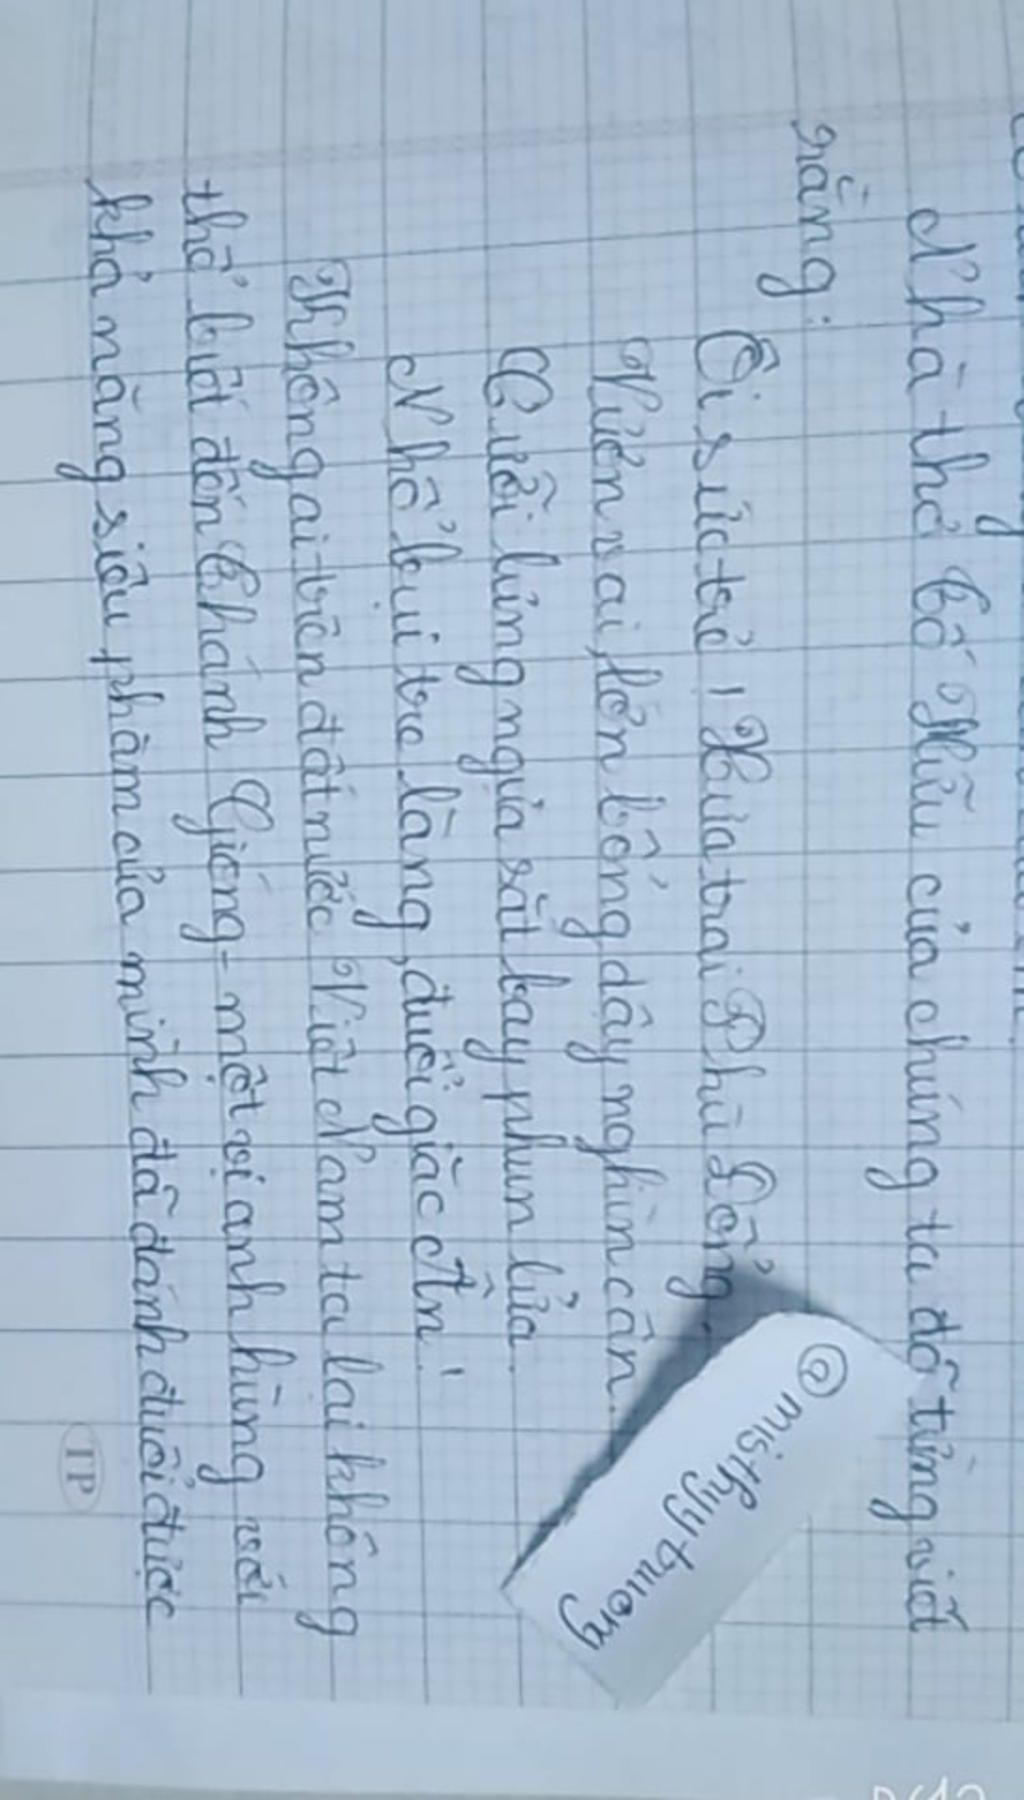 Nhà thơ Tố Hữu của chúng ta đã từng viết
rằng:
Ôi sức trẻ! Xưa trai Phù Đổng
Vươn vai, lớn bổng dậy nghìn cân
Cưỡi lưng ngựa sắt bay phun lửa
Nhổ bụi tre làng, đuổi giặc Ân!
Không ai trên đất nước Việt Nam ta lại không
thể biết đến Thánh Gióng - một vị anh hùng với
khả năng siêu phàm của mình đã đánh đuổi được
@misthyytruong
TP